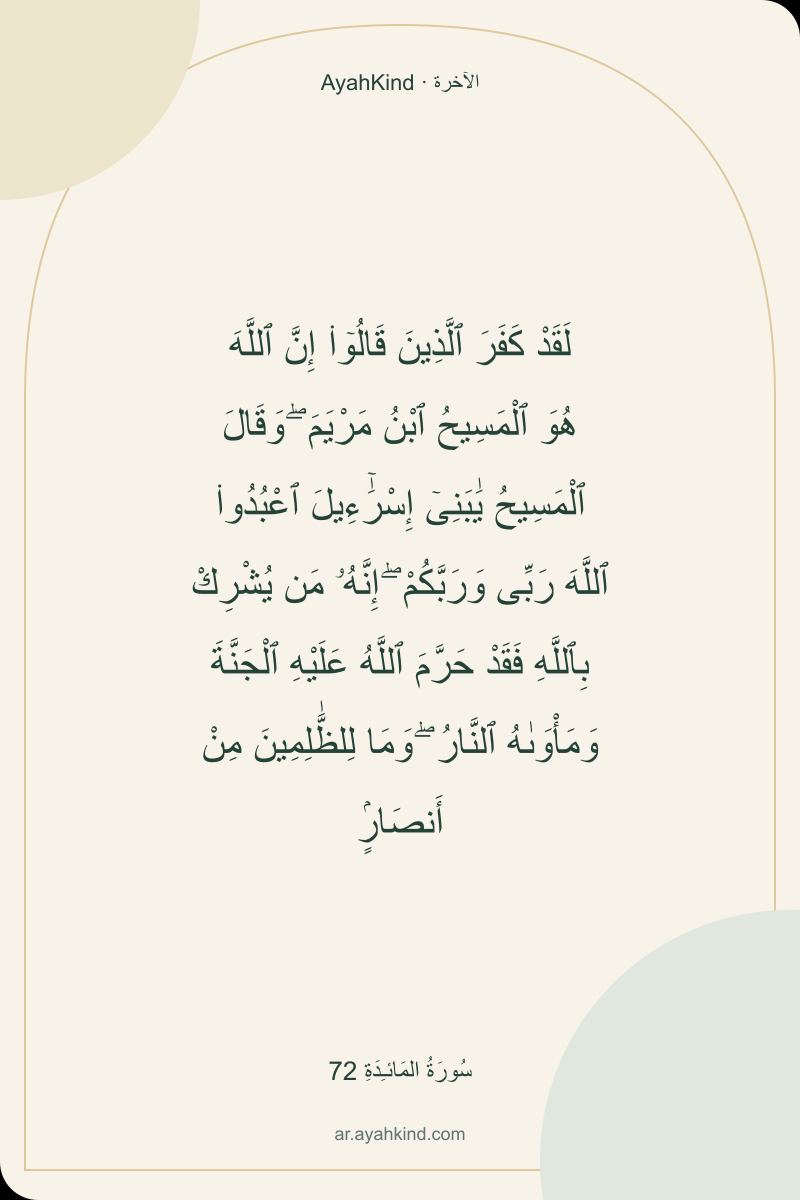 AyahKind · الآخرة
لَقَدْ كَفَرَ ٱلَّذِينَ قَالُوٓا۟ إِنَّ ٱللَّهَ
هُوَ ٱلْمَسِيحُ ٱبْنُ مَرْيَمَ ۖ وَقَالَ
ٱلْمَسِيحُ يَٰبَنِىٓ إِسْرَٰٓءِيلَ ٱعْبُدُوا۟
ٱللَّهَ رَبِّى وَرَبَّكُمْ ۖ إِنَّهُۥ مَن يُشْرِكْ
بِٱللَّهِ فَقَدْ حَرَّمَ ٱللَّهُ عَلَيْهِ ٱلْجَنَّةَ
وَمَأْوَىٰهُ ٱلنَّارُ ۖ وَمَا لِلظَّٰلِمِينَ مِنْ
أَنصَارٍۢ
سُورَةُ المَائـِدَةِ 72
ar.ayahkind.com